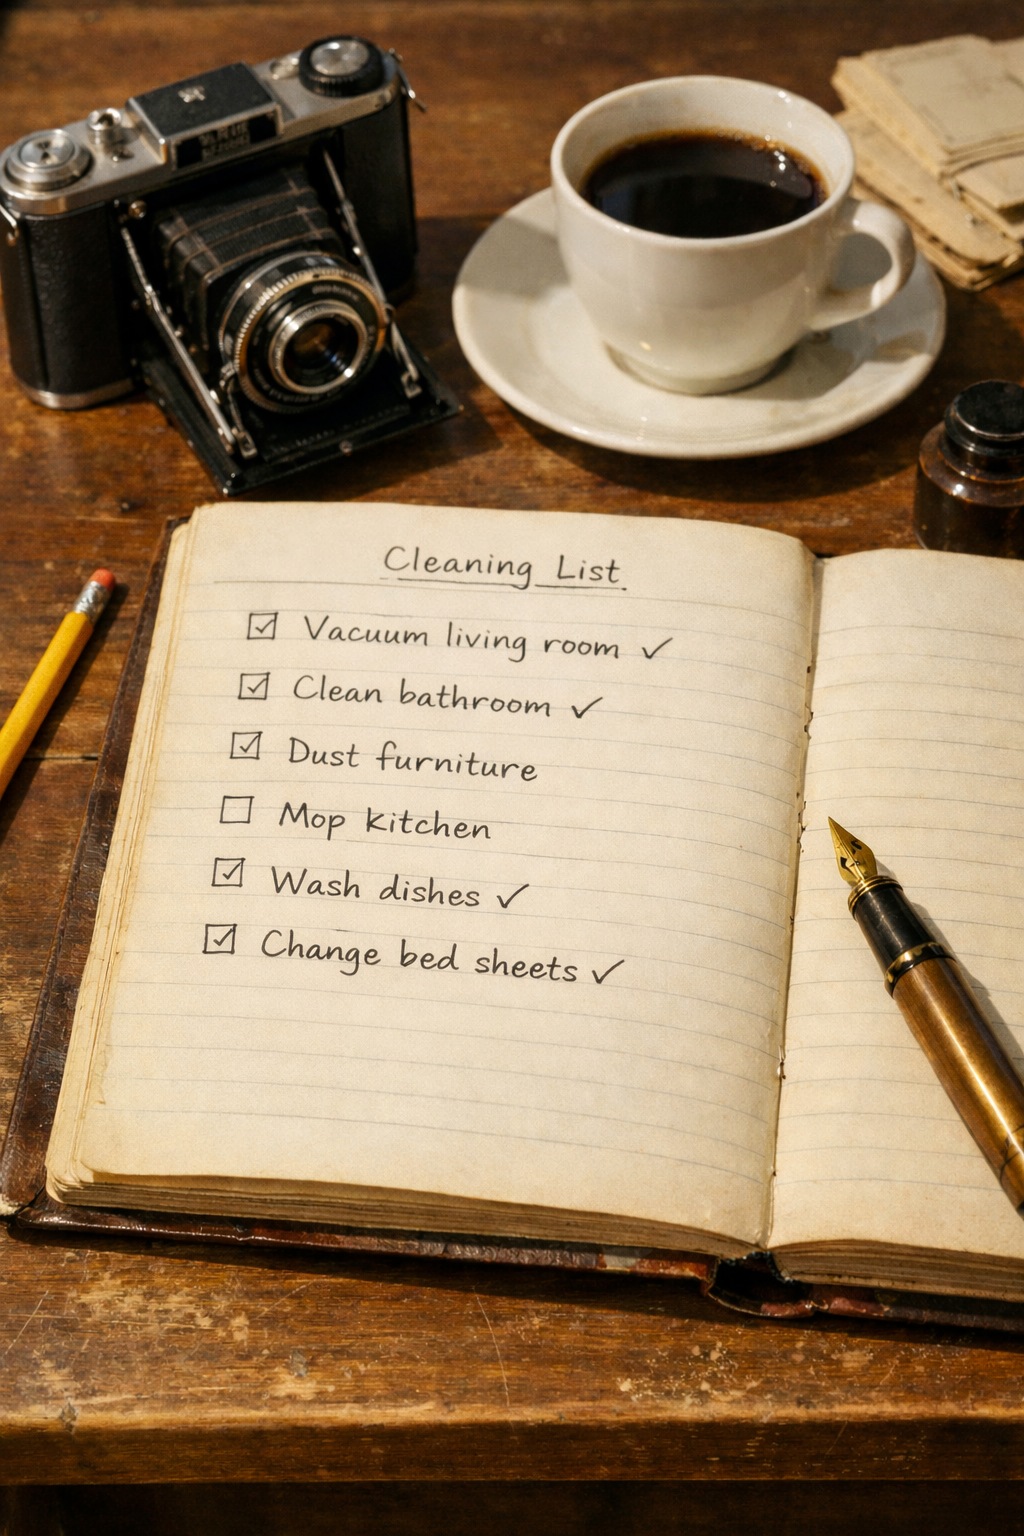 Cleaning List
☑ Vacuum living room ✓
☑ Clean bathroom ✓
☑ Dust furniture
☐ Mop kitchen
☑ Wash dishes ✓
☑ Change bed sheets ✓